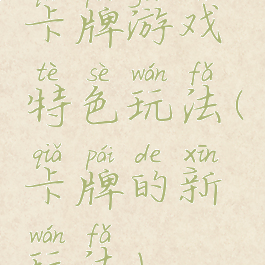 卡牌游戏
tè sè wán fǎ
特色玩法(
qiǎ pái de xīn
卡牌的新
wán fǎ
玩法)